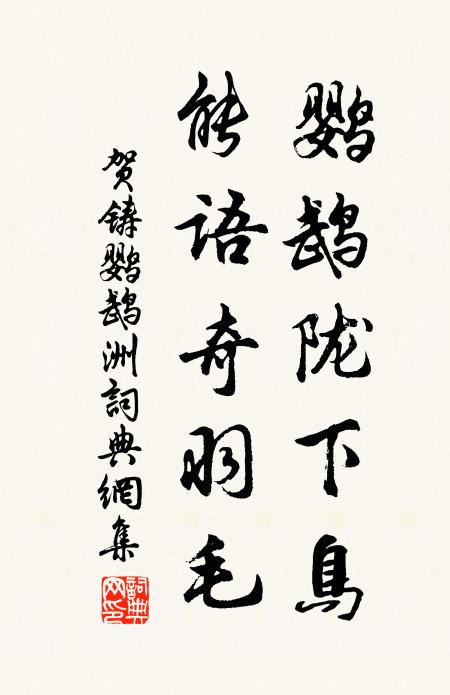 鹦鹉陇下鸟
能语奇羽毛
贺铸鹦鹉洲詞典網集
詞典網印